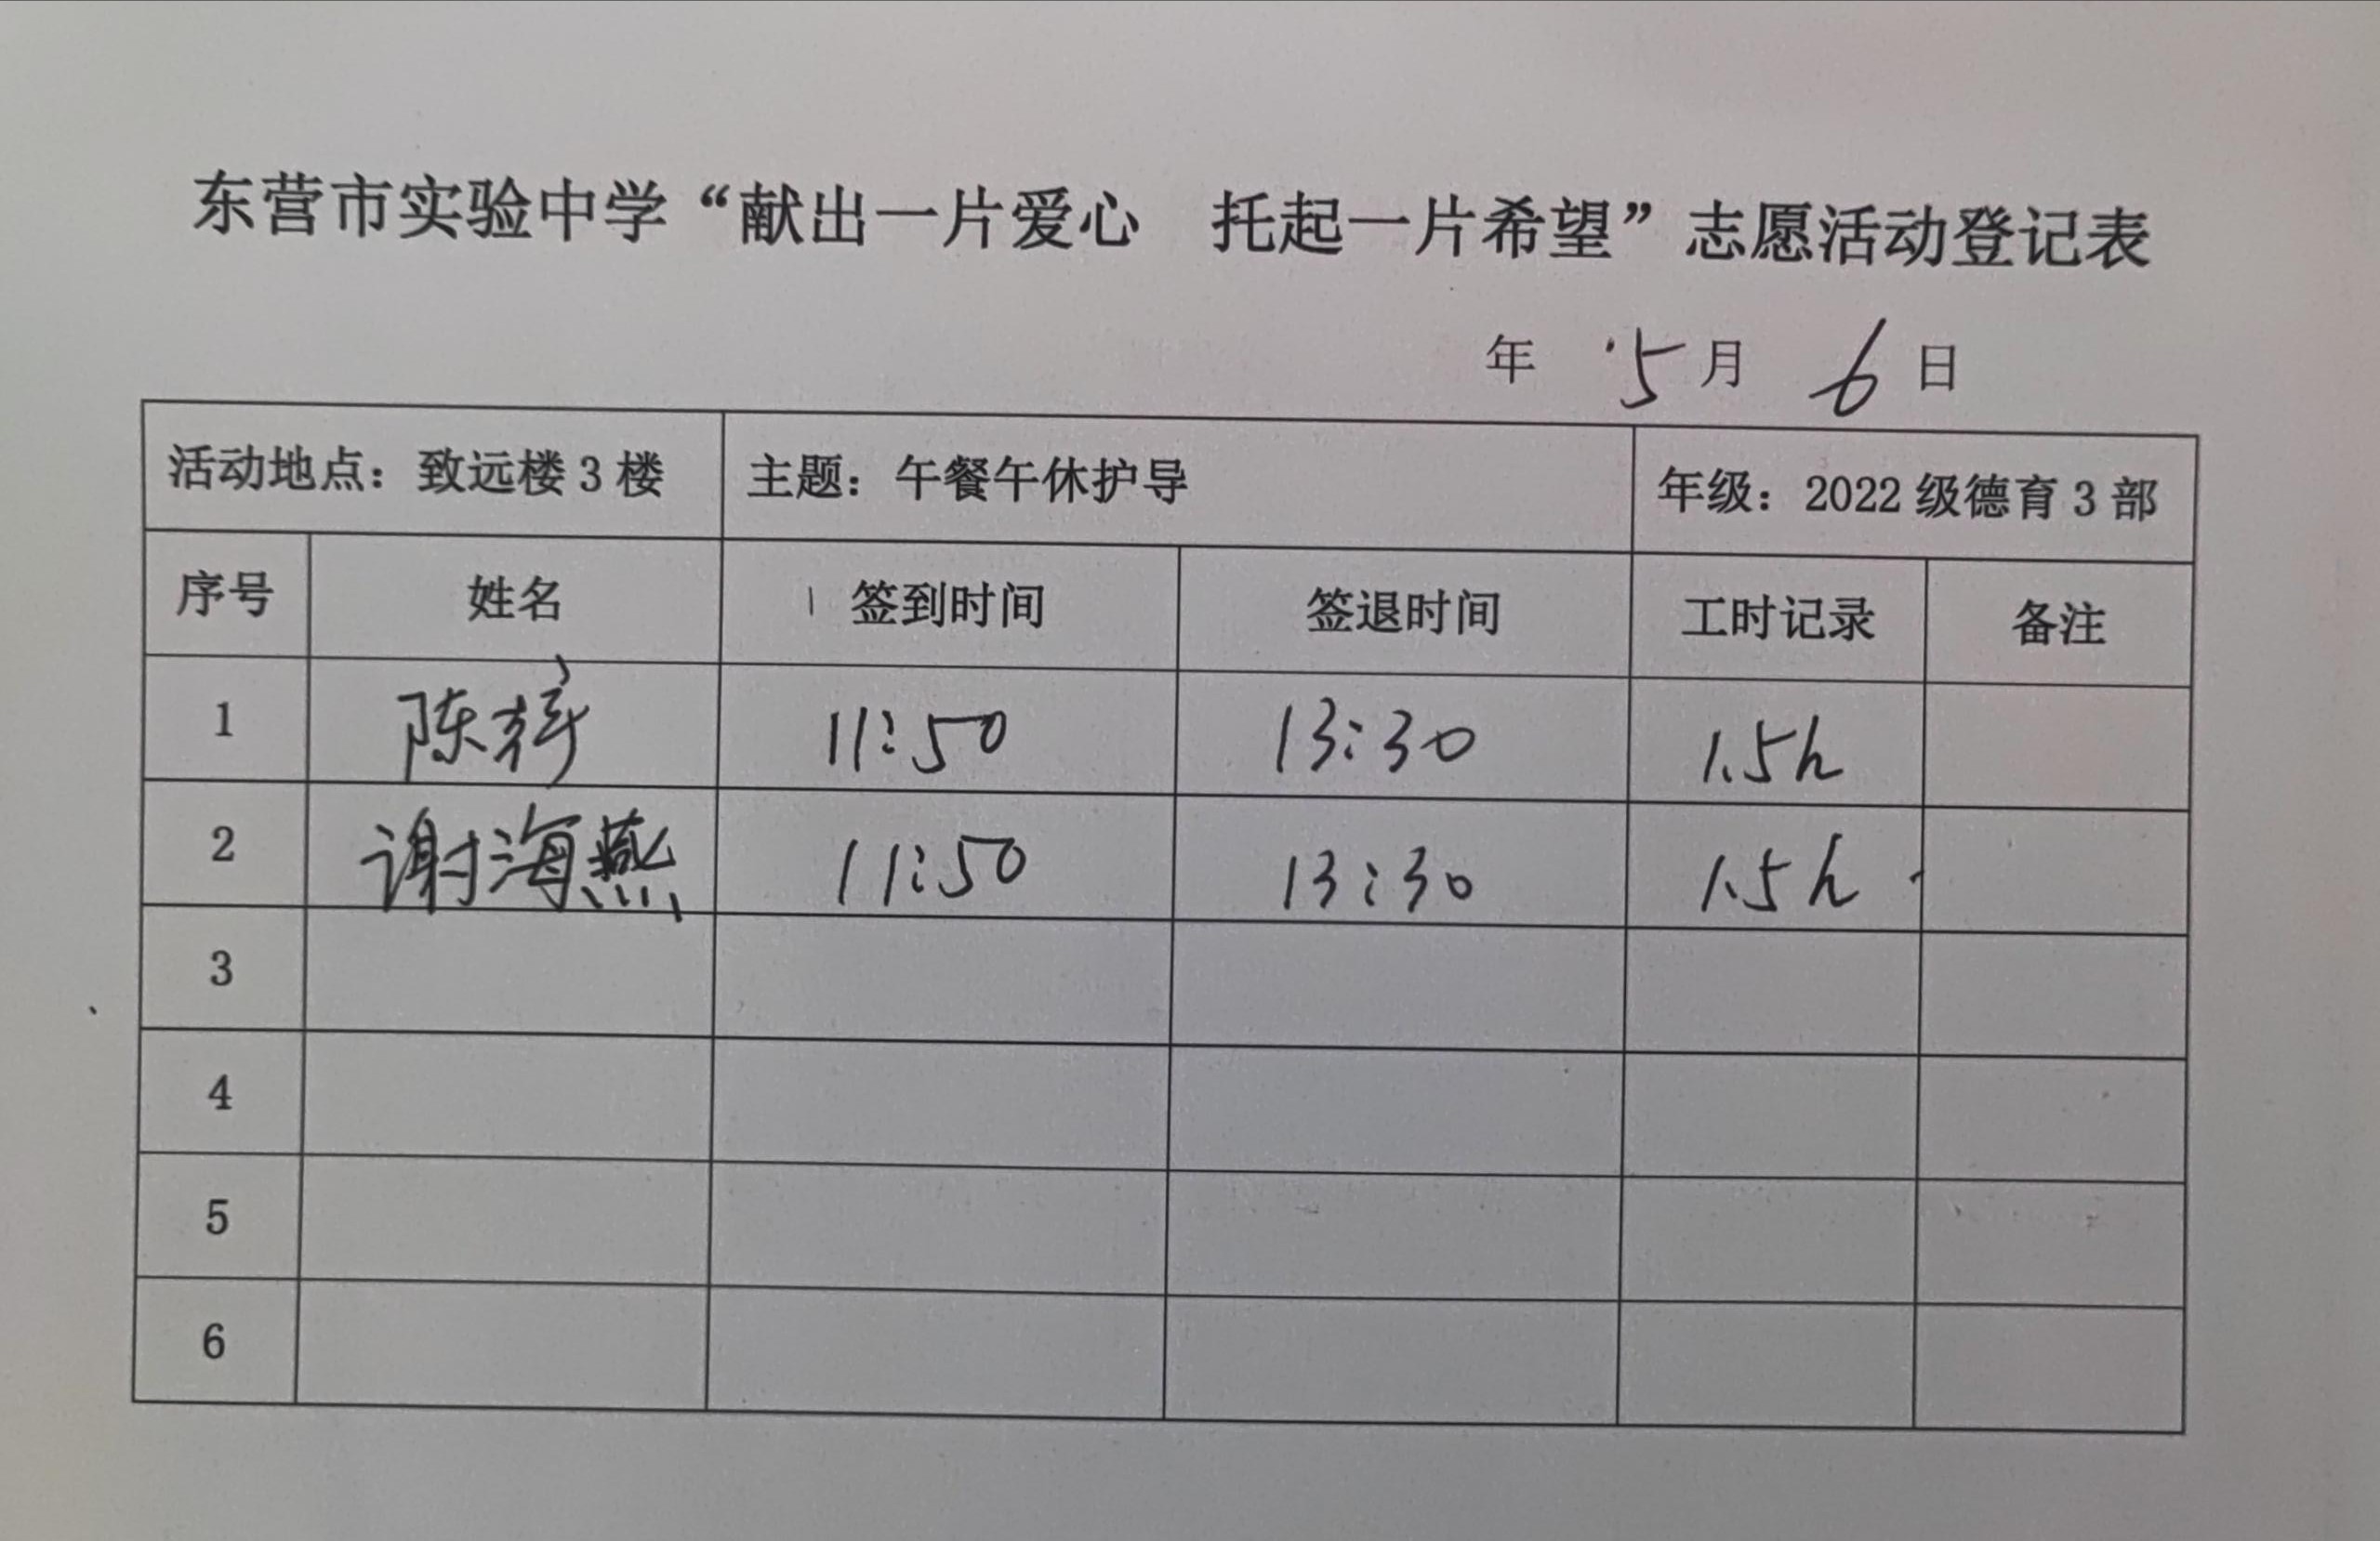 东营市实验中学“献出一片爱心 托起一片希望”志愿活动登记表
年 5月 6日
活动地点：致远楼3楼 主题：午餐午休护导 年级：2022级德育3部
序号 姓名 签到时间 签退时间 工时记录 备注
1 陈梓 11:50 13:30 1.5h
2 谢海燕 11:50 13:30 1.5h
3
4
5
6